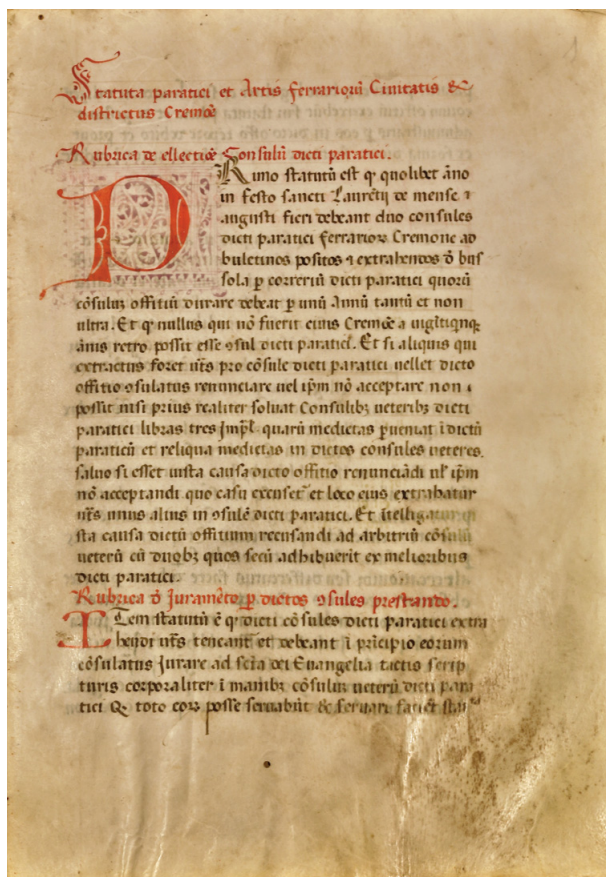 Statuta paratici et Artis ferrariorū Ciuitatis &
districtus Cremōe
Rubrica de ellectiōe Consulū dicti paratici.
PRimo statutū est q̄ quolibet āno
in festo sancti Laurētij de mense
augusti fieri debeant duo consules
dicti paratici ferrarioꝝ Cremone ad
buletinos positos ⁊ extrahendos ō bus
sola p̱ correriū dicti paratici quorū
cōsulum offitiū durare debeat p̱ unū Annū tantū et non
ultra. Et q̄ nullus qui nō fuerit ciuis Cremōe a uigītiqnqꝫ
ānis retro possit esse ꝯsul dicti paratici. Et si aliquis qui
extractus foret uīs pro cōsule dicti paratici uellet dicto
offitio ꝯsulatus renunciare uel ip̄m nō acceptare non
possit nisi prius realiter soluat Consulibꝫ ueteribꝫ dicti
paratici libras tres Imp̄l quarū medietas p̱ueniat ī dictū
paraticū et reliqua medietas in dictos consules ueteres.
saluo si esset iusta causa dicto offitio renunciādi ul̓ ip̄m
nō acceptandi quo casu excuset᷑ et loco eius extrahatur
uīs unus alius in ꝯsulē dicti paratici. Et ītelligatur
sta causa dictū offitium recusandi ad arbitriū cōsulū
ueterū cū duobꝫ quos secū adhibuerit ex melioribus
dicti paratici.
Rubrica ō Iuramēto p̱ dictos ꝯsules prestando.
ITem statutū ē q̄ dicti cōsules dicti paratici extra
hendi uīs teneant᷑ et debeant ī prīcipio eorum
cōsulatus Iurare ad scīa dei Euangelia tactis scrip
turis corporaliter ī manibꝫ cōsulum ueterū dicti para
tici Q̄ toto eoꝝ posse seruabūt & seruari faciēt